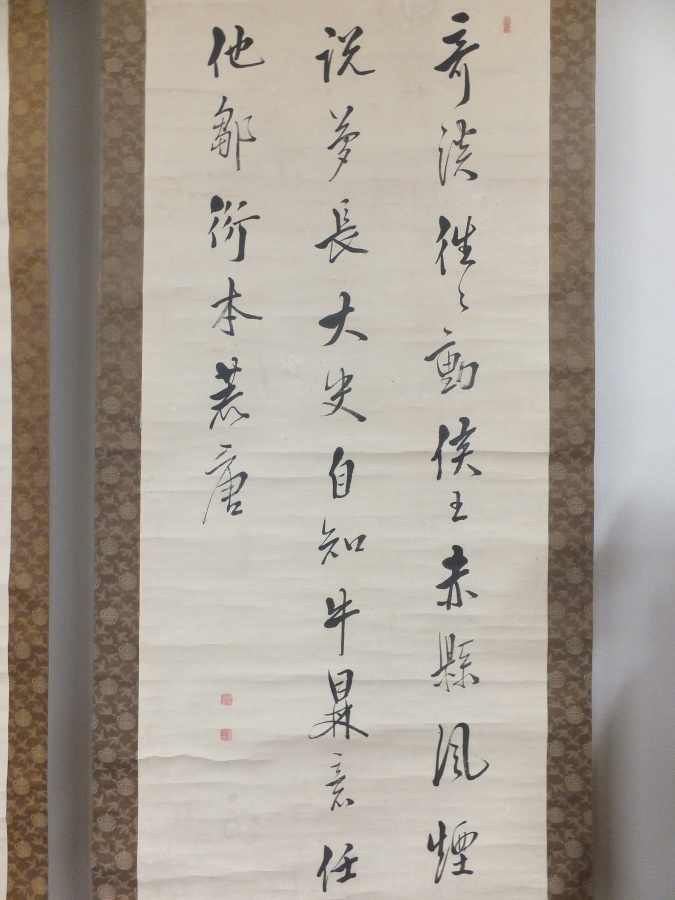 奇談往〻動侯王赤縣風煙
説夢長大史自知牛鼎意任
他鄒衍本荒唐